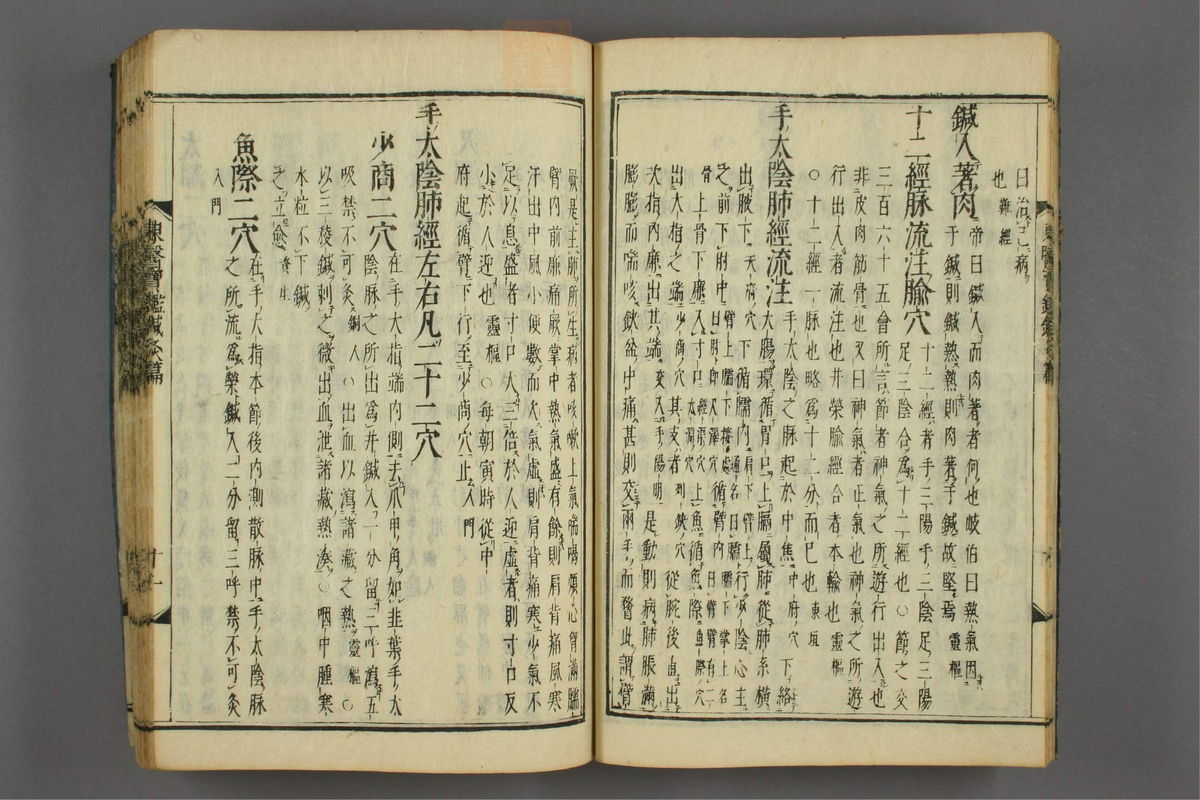 曰治已病
也難經
鍼入著肉帝曰鍼入而肉著者何也岐伯曰熱氣因
於鍼則鍼熱熱則肉著于鍼故堅焉靈樞
十二經脉流注腧穴十二經者手三陽手三陰足三陽
足三陰合爲十二經也○節之交
三百六十五會所言節者神氣之所遊行出入也
非皮肉筋骨也又曰神氣者正氣也神氣之所遊
行出入者流注也井滎腧經合者本輸也靈樞
○十二經一脉也略爲十二分而已也東垣
手太陰肺經流注手太陰之脉起於中焦中府穴下絡
大腸環循胃口上膈屬肺從肺系橫
出腋下天府穴下循臑內肩下臂上通名曰臑行少陰心主
之前下肘中臂上臑下接處曰肘卽尺澤穴循臂內臑下掌上名曰臂臂有二
骨上骨下廉入寸口經渠穴太淵穴上魚循魚際魚際穴
出大指之端少商穴其支者列缺穴從腕後直出
次指內廉出其端交入手陽明是動則病肺脹滿
膨膨而喘咳缺盆中痛甚則交兩手而瞀此謂臂
厥是主肺所生病者咳嗽上氣喘喝煩心胷滿臑
臂內前廉痛厥掌中熱氣盛有餘則肩背痛風寒
汗出中風小便數而欠氣虛則肩背痛寒少氣不
足以息盛者寸口大三倍於人迎虛者則寸口反
小於人迎也靈樞○每朝寅時從中
府起循臂下行至少商穴止入門
手太陰肺經左右凡二十二穴
少商二穴在手大指端內側去爪甲角如韭葉手太
陰脉之所出爲井鍼入一分留三呼瀉五
吸禁不可灸銅人○出血以瀉諸藏之熱靈樞○
以三稜鍼刺之微出血泄諸藏熱湊○咽中腫塞
水粒不下鍼
之立愈資生
魚際二穴在手大指本節後內測散脉中手太陰脉
之所流爲滎鍼入二分留三呼禁不可灸
入門
東醫寶鑑鍼灸篇
十一